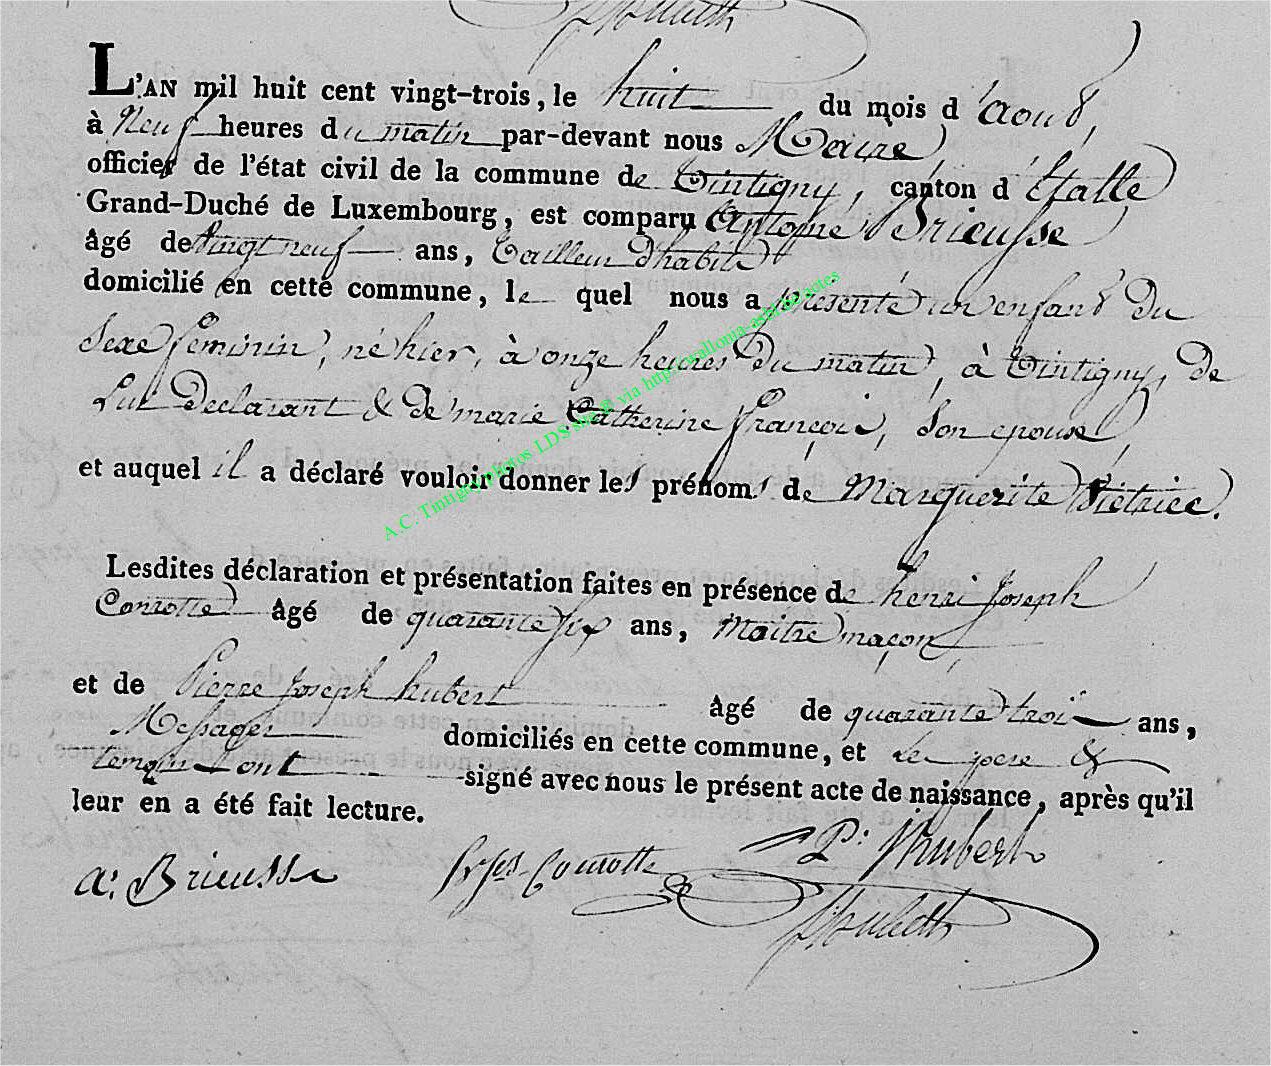 L'AN mil huit cent vingt-trois, le huit du mois d'aout,
à Neuf heures du matin par-devant nous Maire,
officier de l'état civil de la commune de Tintigny, canton d'Etalle
Grand-Duché de Luxembourg, est comparu Antoine Brieusse
âgé de vingt neuf ans, tailleur d'habits
domicilié en cette commune, le quel nous a présenté un enfant du
Sexe féminin, né hier, à onze heures du matin, à Tintigny, de
Lui Declarant & de marie Catherine françois, son epouse,
et auquel il a déclaré vouloir donner les prénoms de Marguerite Piétrice.
Lesdites déclaration et présentation faites en présence de henri Joseph
Comotte âgé de quarante six ans, Maitre maçon,
et de Pierre Joseph hubert âgé de quarante trois ans,
Messager domiciliés en cette commune, et Le pere &
temoins ont signé avec nous le présent acte de naissance, après qu'il
leur en a été fait lecture.
a: Brieusse Comotte P: J hubert
A.C. Tintigny photos LDS site via http://wallonia-asbl.be/actes